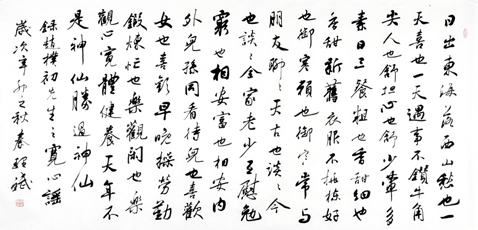 日出東海落西山愁也一
天喜也一天遇事不鑽牛角
尖人也舒担心也舒少葷多
素日三餐粗也香甜細也
香甜新舊衣服不挑揀好
也御寒頼也御寒常与
朋友聊聊天古也談談今
也談談全家老少互慰勉
窮也相安富也相安内
外兒孫同看待兒也喜歡
女也喜歡早晚操勞勤
鍛煉忙也樂觀閑也樂
觀心寬體健養天年不
是神仙勝過神仙
錄趙樸初先生之寬心謠
歲次辛卯之秋春斌